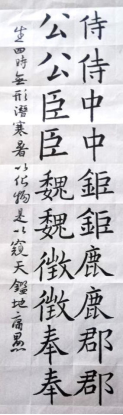 侍侍中中鉅鉅鹿鹿郡郡
公公臣臣魏魏徵徵奉奉
生四時無形潛寒暑以化物是以窺天鑑地庸愚